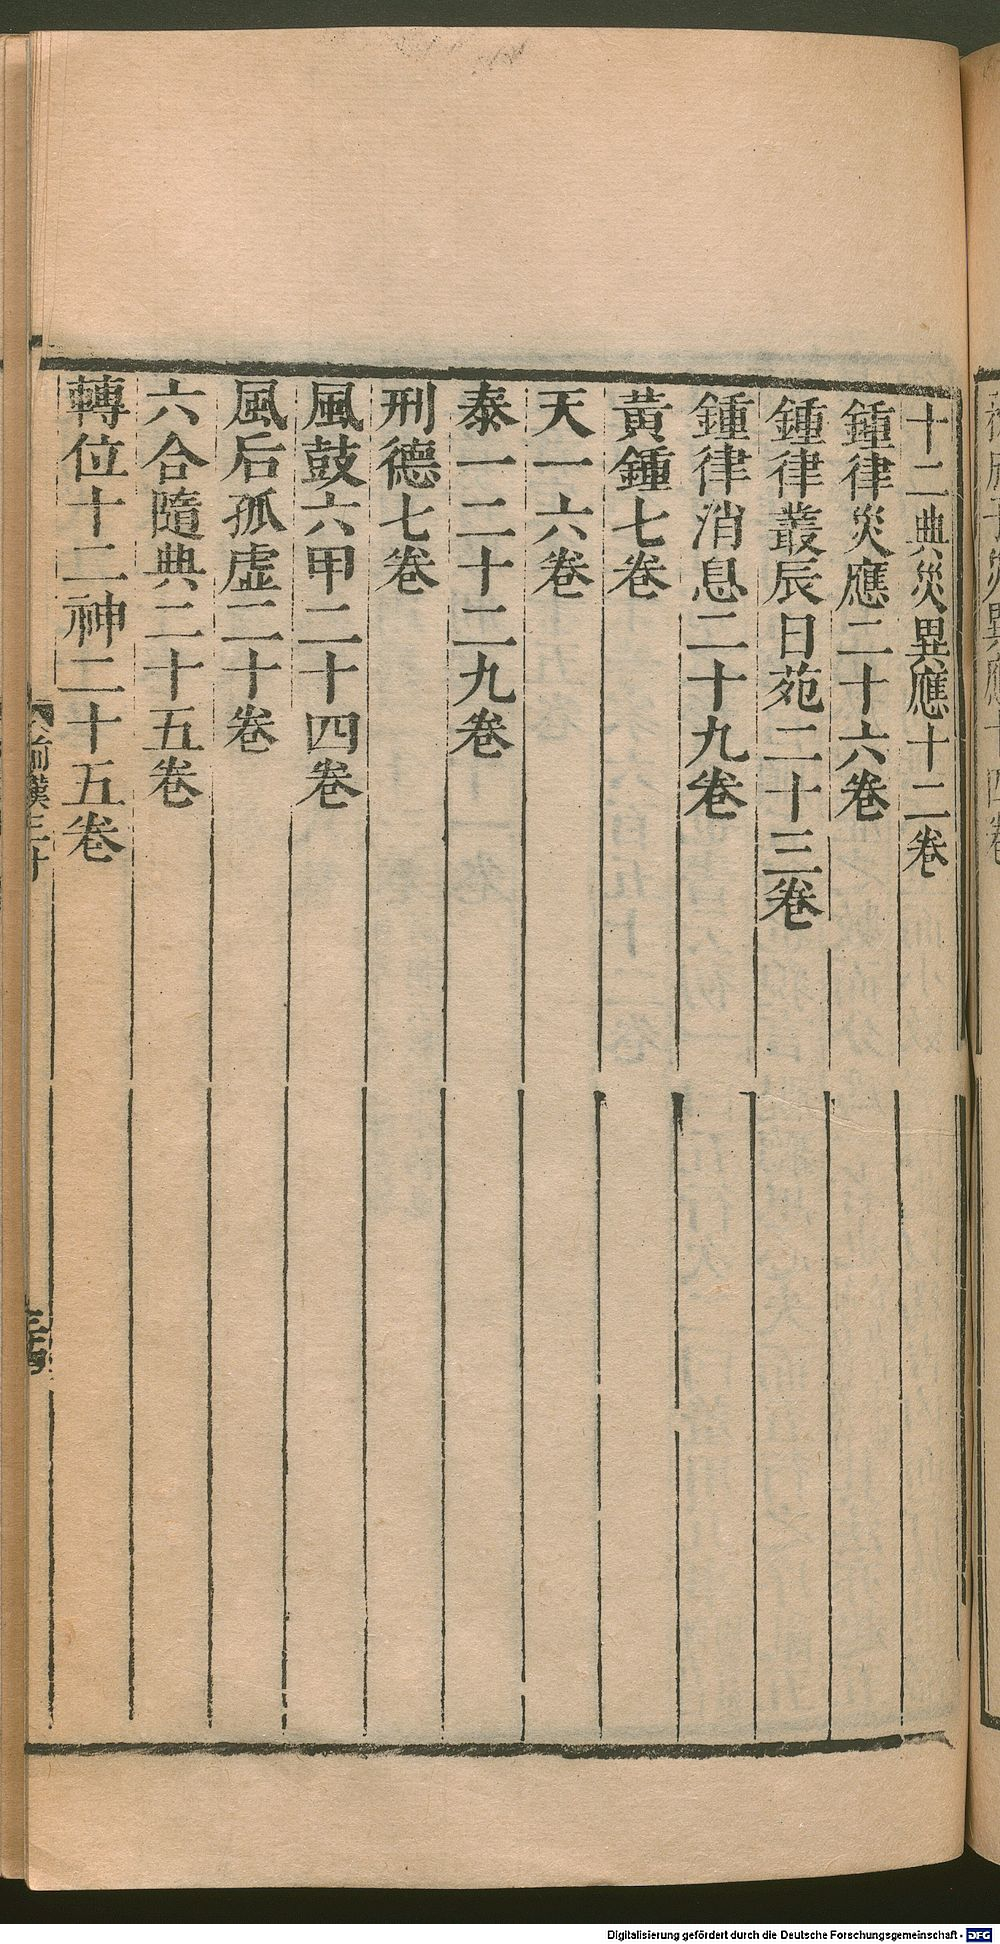 十二典災異應十二卷
鍾律災應二十六卷
鍾律叢辰日苑二十三卷
鍾律消息二十九卷
黃鍾七卷
天一六卷
泰一二十九卷
刑德七卷
風鼓六甲二十四卷
風后孤虛二十卷
六合隨典二十五卷
轉位十二神二十五卷
前漢三十
Digitalisierung gefördert durch die Deutsche Forschungsgemeinschaft - DFG